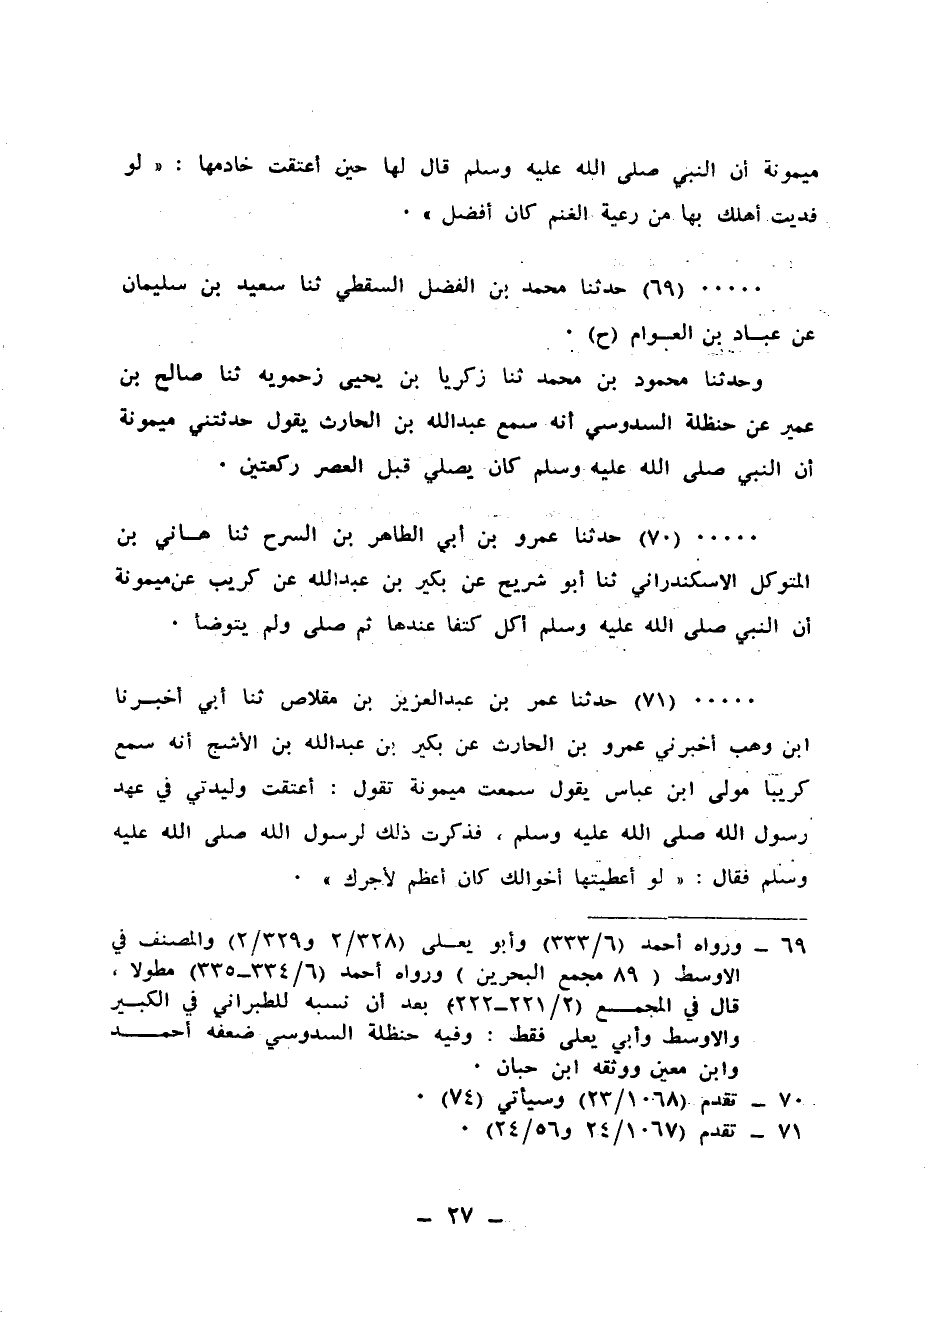 ميمونة أن النبي صلى الله عليه وسلم قال لها حين أعتقت خادمها : « لو
فديت أهلك بها من رعية الغنم كان أفضل » ·
· · · · · (٦٩) حدثنا محمد بن الفضل السقطي ثنا سعيد بن سليمان
عن عبــاد بن العــوام (ح) ·
وحدثنا محمود بن محمد ثنا زكريا بن يحيى زحمويه ثنا صالح بن
عمير عن حنظلة السدوسي أنه سمع عبدالله بن الحارث يقول حدثتني ميمونة
أن النبي صلى الله عليه وسلم كان يصلي قبل العصر ركعتين ·
· · · · · (٧٠) حدثنا عمرو بن أبي الطاهر بن السرح ثنا هــاني بن
المتوكل الاسكندراني ثنا أبو شريح عن بكير بن عبدالله عن كريب عن ميمونة
أن النبي صلى الله عليه وسلم أكل كتفا عندها ثم صلى ولم يتوضأ ·
· · · · · (٧١) حدثنا عمر بن عبدالعزيز بن مقلاص ثنا أبي أخبــرنا
ابن وهب أخبرني عمرو بن الحارث عن بكير بن عبدالله بن الأشج أنه سمع
كريبا مولى ابن عباس يقول سمعت ميمونة تقول : أعتقت وليدتي في عهد
رسول الله صلى الله عليه وسلم ، فذكرت ذلك لرسول الله صلى الله عليه
وسلم فقال : « لو أعطيتها أخوالك كان أعظم لأجرك » ·
٦٩ ــ ورواه أحمد (٣٣٣/٦) وأبو يعــلى (٢/٣٢٨ و٢/٣٢٩) والمصنف في
الاوسط ( ٨٩ مجمع البحرين ) ورواه أحمد (٣٣٤/٦ــ٣٣٥) مطولا ،
قال في المجمــع (٢٢١/٢ــ٢٢٢) بعد أن نسبه للطبراني في الكبير
والاوسط وأبي يعلى فقط : وفيه حنظلة السدوسي ضعفه أحمــد
وابن معين ووثقه ابن حبان ·
٧٠ ــ تقدم (٢٣/١٠٦٨) وسيأتي (٧٤) ·
٧١ ــ تقدم (٢٤/١٠٦٧ و٢٤/٥٦) ·
ــ ٢٧ ــ